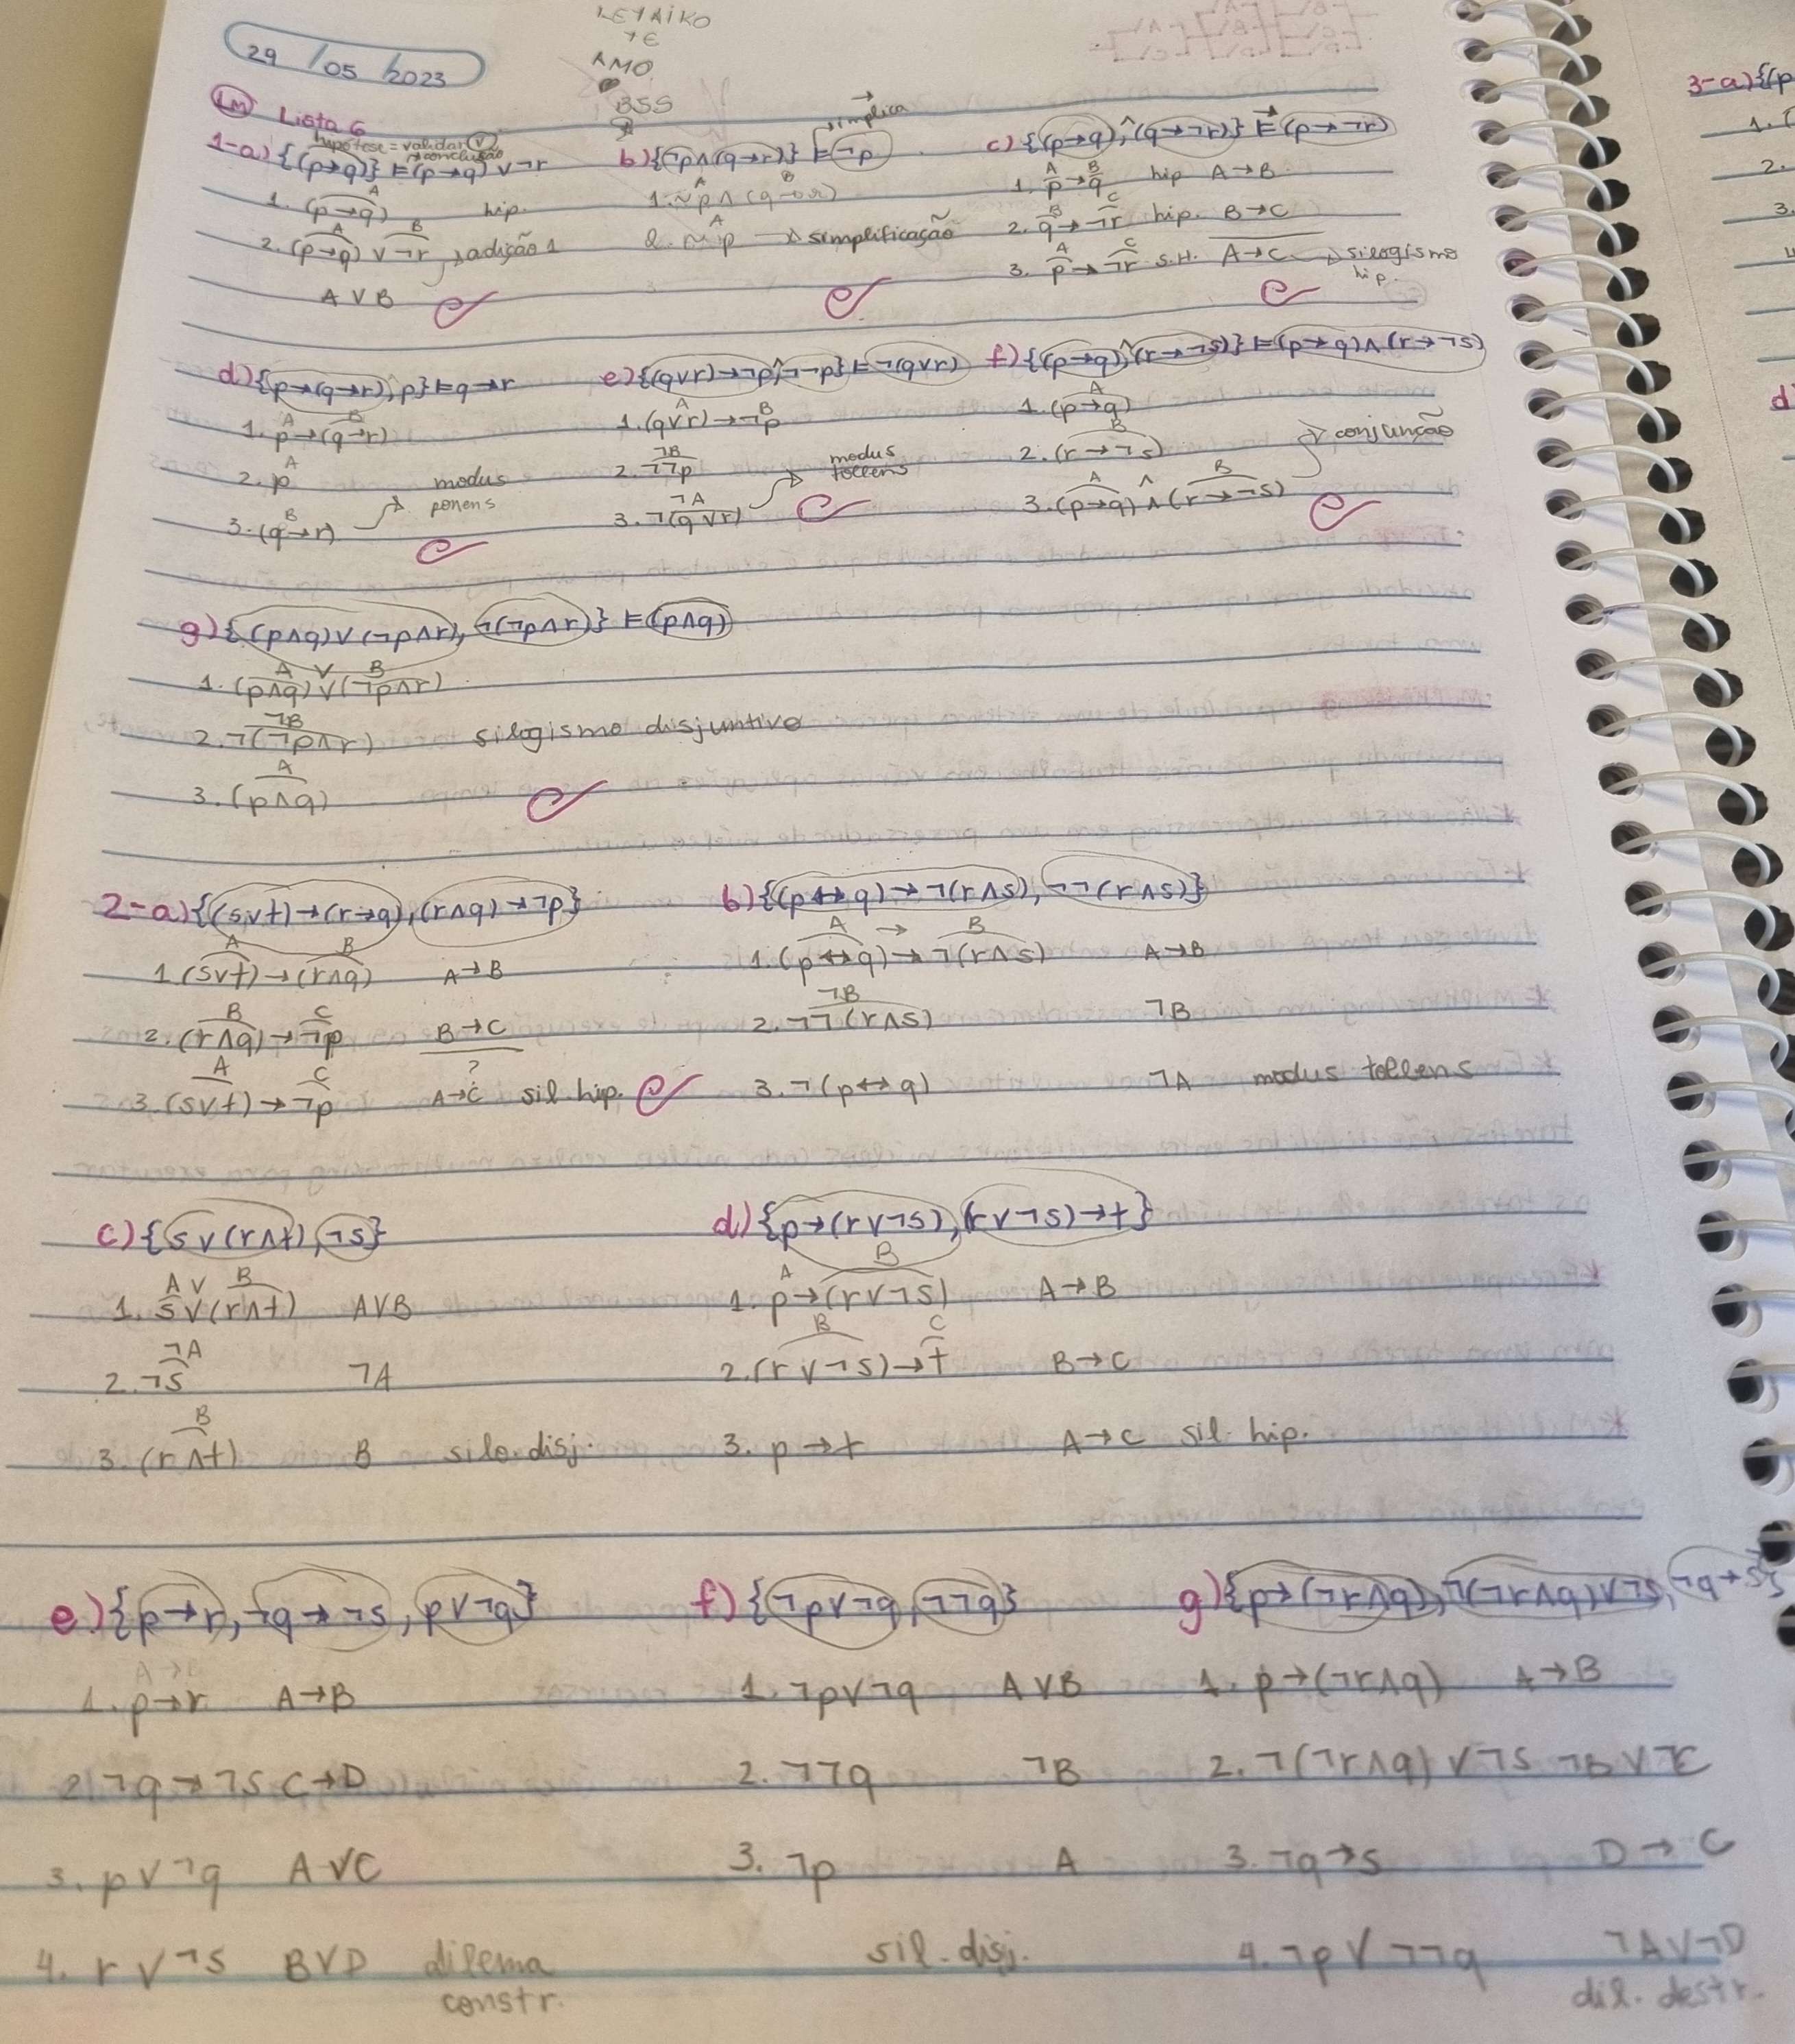 LEYAIKO
AMO
BSS
29/05/2023
LM Lista 6
hipótese = validar (V)
→ conclusão
1-a) {(p→q)} ⊨ (p→q) ∨ ¬r
A
1. (p→q) hip.
A B
2. (p→q) ∨ ¬r → adição 1
A V B
→
simplica
b) {¬p∧(q→r)} ⊨ ¬p
A B
1. ~p ∧ (q→r)
A
2. ~p → simplificação
→
c) {(p→q)^,(q→¬r)} ⊨ (p→¬r)
A B
1. p→q hip A→B
B C
2. q→¬r hip. B→C
A C
3. p→¬r S.H. A→C → silogismo
hip.
d) {p→(q→r), p} ⊨ q→r
A B
1. p→(q→r)
A
2. p
B
3. (q→r) → modus
ponens
e) {(q∨r)→¬p^,¬¬p} ⊨ ¬(q∨r)
A B
1. (q∨r)→¬p
¬B
2. ¬¬p
¬A
3. ¬(q∨r) → modus
tollens
f) {(p→q)^,(r→¬s)} ⊨ (p→q)∧(r→¬s)
A
1. (p→q)
B
2. (r→¬s)
A ^ B
3. (p→q) ∧ (r→¬s) → conjunção
g) {(p∧q)∨(¬p∧r), ¬(¬p∧r)} ⊨ (p∧q)
A V B
1. (p∧q)∨(¬p∧r)
¬B
2. ¬(¬p∧r) silogismo disjuntivo
A
3. (p∧q)
2-a) {(s∨t)→(r→q),(r∧q)→¬p}
A B
1. (s∨t)→(r∧q) A→B
B C
2. (r∧q)→¬p B→C
A C ?
3. (s∨t)→¬p A→C sil. hip.
b) {(p↔q)→¬(r∧s), ¬¬(r∧s)}
A → B
1. (p↔q)→¬(r∧s) A→B
¬B
2. ¬¬(r∧s) ¬B
3. ¬(p↔q) ¬A modus tollens
c) {s∨(r∧t), ¬s}
A V B
1. s∨(r∧t) AVB
¬A
2. ¬s ¬A
B
3. (r∧t) B silo. disj.
d) {p→(r∨¬s), (r∨¬s)→t}
A B
1. p→(r∨¬s) A→B
B C
2. (r∨¬s)→t B→C
3. p→t A→C sil. hip.
e) {p→r, ¬q→¬s, p∨¬q}
1. p→r A→B
2. ¬q→¬s C→D
3. p∨¬q AVC
4. r∨¬s BVD dilema
constr.
f) {¬p∨¬q, ¬¬q}
1. ¬p∨¬q AVB
2. ¬¬q ¬B
3. ¬p A
sil. disj.
g) {p→(¬r∧q), ¬(¬r∧q)∨¬s, ¬q→s}
1. p→(¬r∧q) A→B
2. ¬(¬r∧q)∨¬s ¬B∨¬C
3. ¬q→s D→C
4. ¬p∨¬¬q ¬A∨¬D
dil. destr.
3-a) {(p
1. (
2.
3.
d)